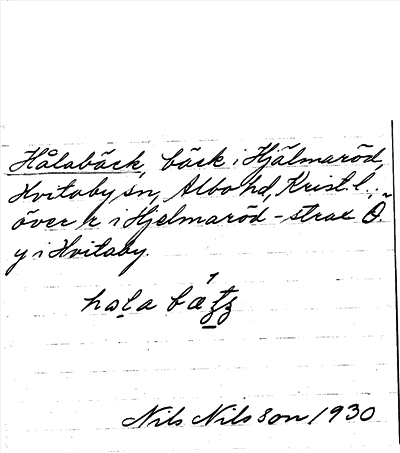 Hålabäck, bäck i Hjälmaröd,
Hvitaby sn, Albo hd, Krist. l.;
över k i Hjelmaröd - strax Ö.
y i Hvitaby.
Nils Nilsson 1930